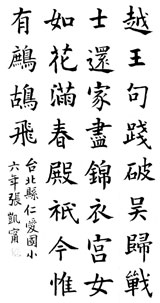 越王句踐破吳歸戰
士還家盡錦衣宮女
如花滿春殿祗今惟
有鷓鴣飛
台北縣仁愛國小
六年張凱甯